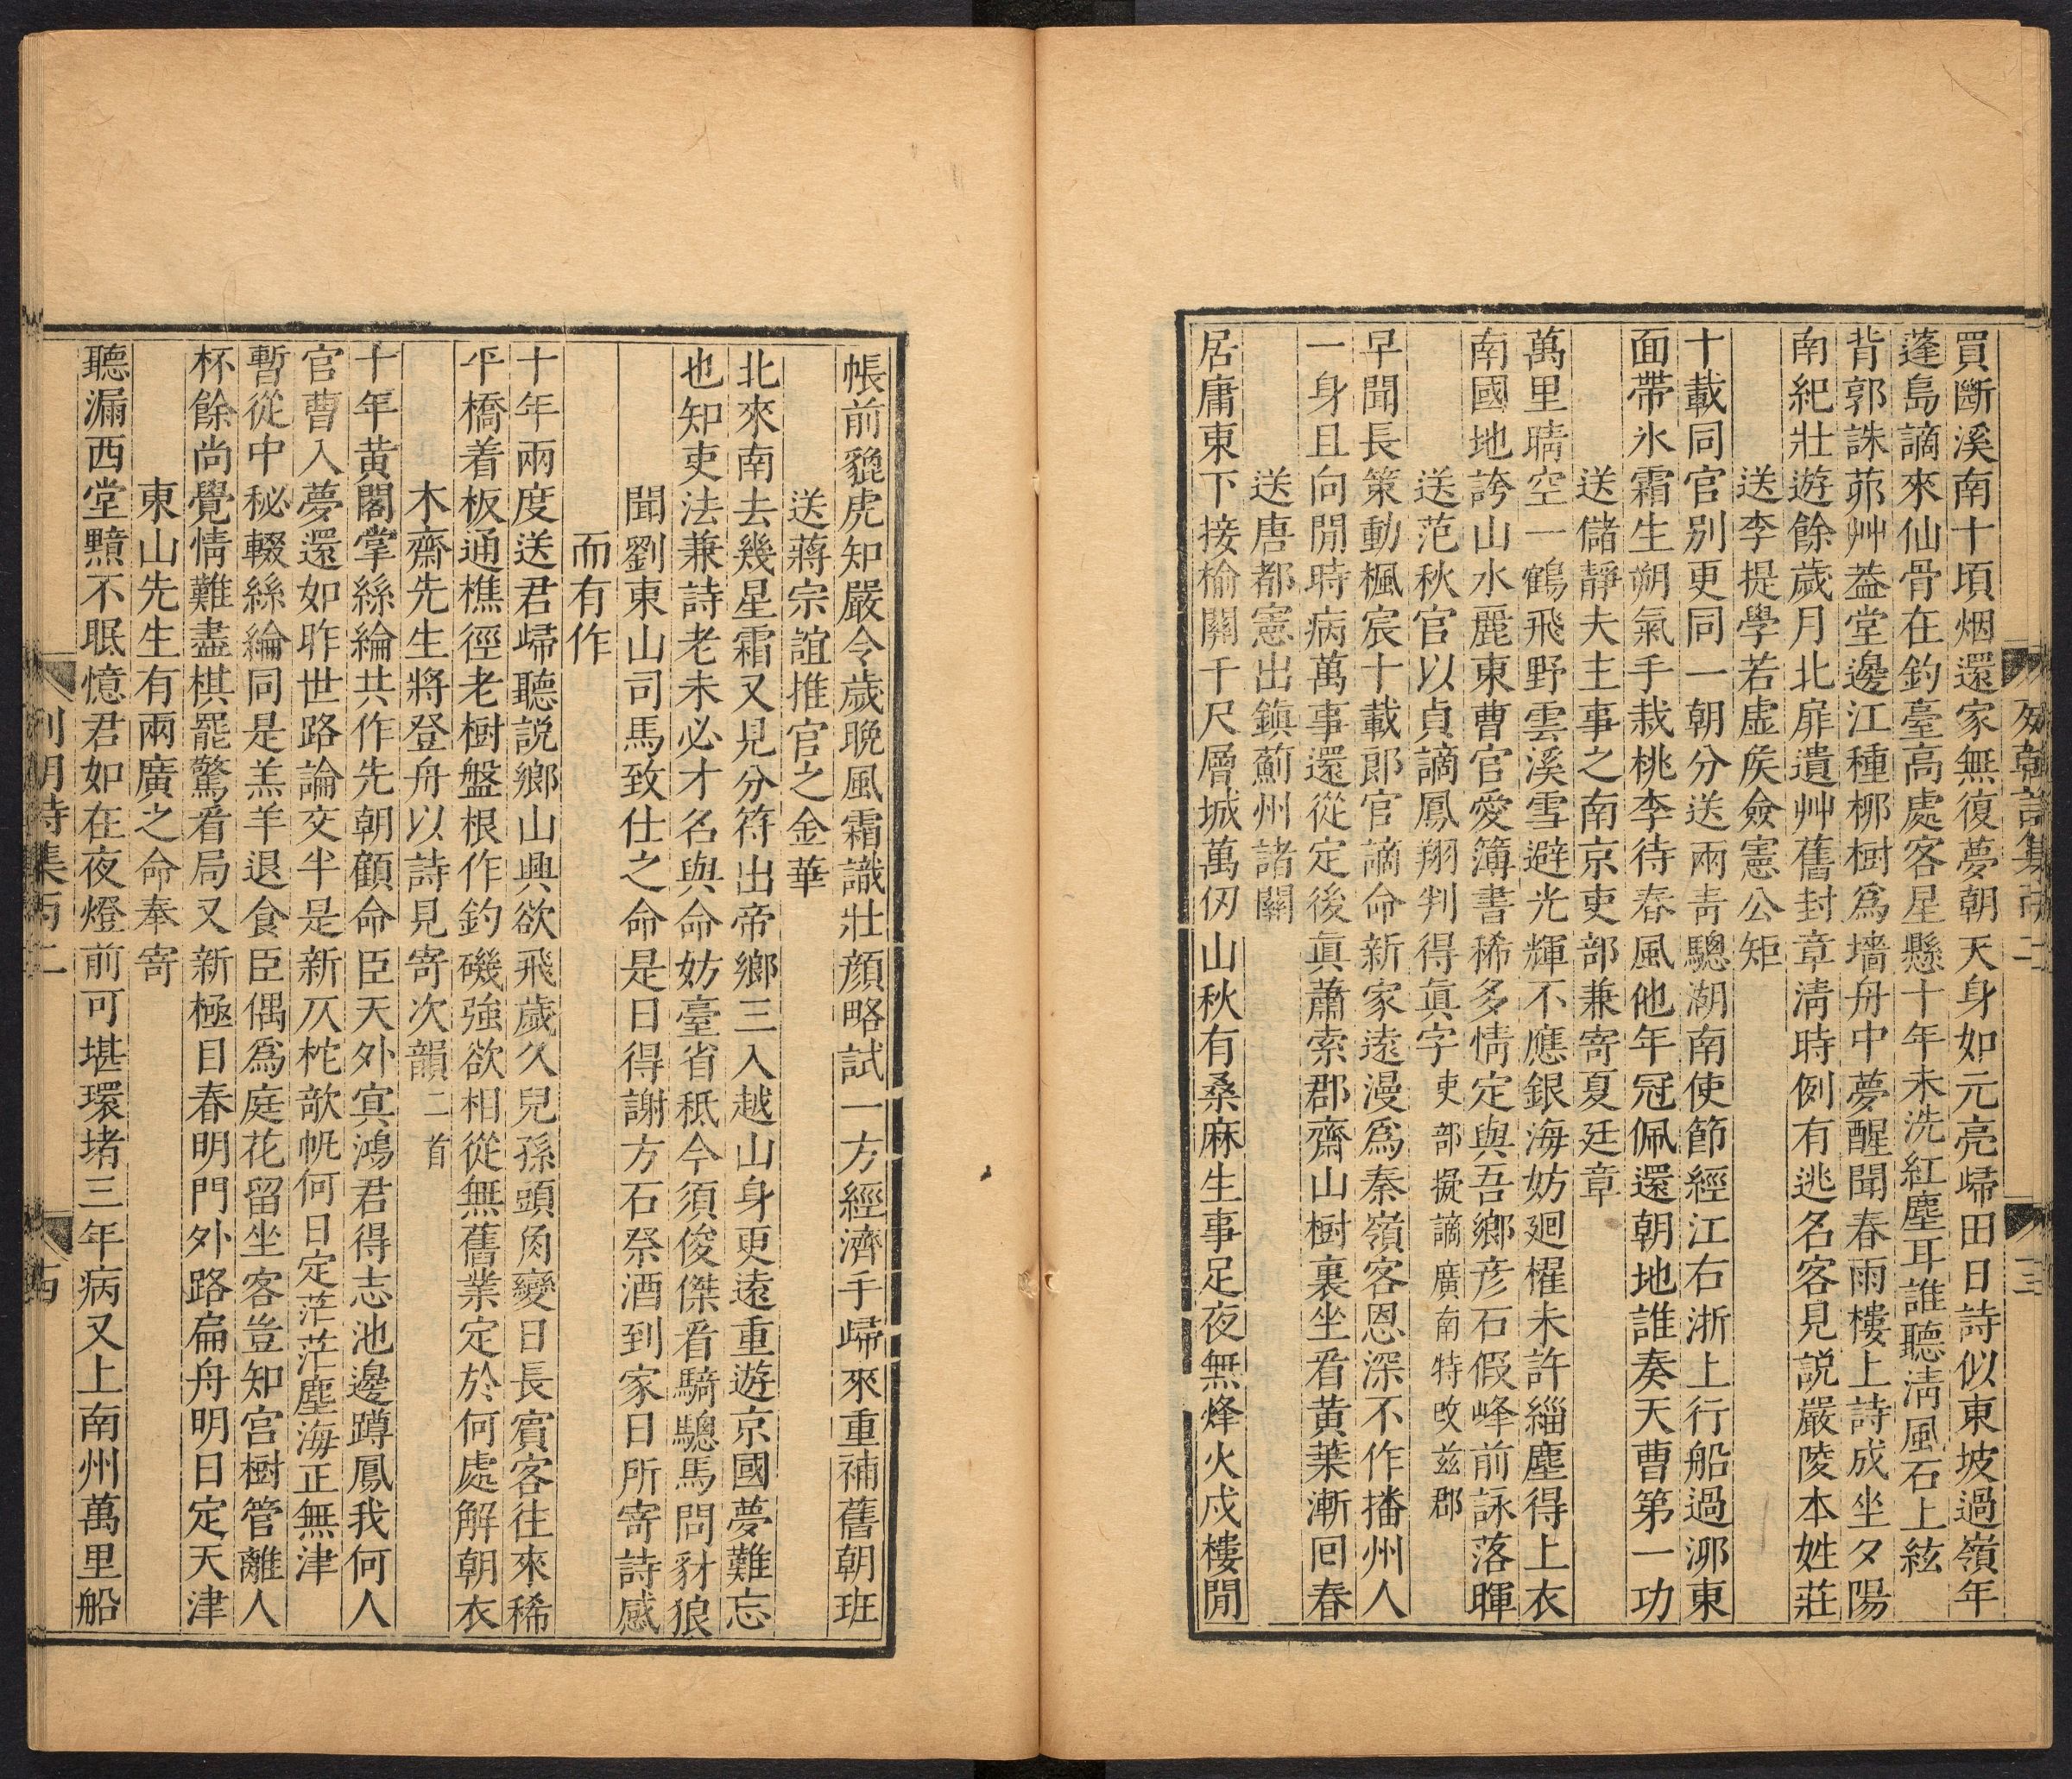 買斷溪南十頃烟還家無復夢朝天身如元亮歸田日詩似東坡過嶺年
蓬島謫來仙骨在釣臺高處客星懸十年未洗紅塵耳誰聽淸風石上絃
背郭誅茆艸葢堂邊江種栁樹爲墻舟中夢醒聞春雨樓上詩成坐夕陽
南紀壯遊餘歲月北扉遺艸舊封章淸時例有逃名客見説嚴陵本姓莊
送李提學若虛矦僉憲公矩
十載同官别更同一朝分送兩靑驄湖南使節經江右浙上行船過泖東
面帶氷霜生朔氣手栽桃李待春風他年冠佩還朝地誰奏天曹第一功
送儲靜夫主事之南京吏部兼寄夏廷章
萬里晴空一鶴飛野雲溪雪避光輝不應銀海妨廻櫂未許緇塵得上衣
南國地誇山水麗東曹官愛簿書稀多情定與吾鄉彦石假峰前詠落暉
送范秋官以貞謫鳳翔判得眞字吏部擬謫廣南特改兹郡
早聞長策動楓宸十載郎官謫命新家遠漫爲秦嶺客恩深不作播州人
一身且向閒時病萬事還從定後眞蕭索郡齋山樹裏坐看黄葉漸回春
送唐都憲出鎭薊州諸關
居庸東下接榆關千尺層城萬仭山秋有桑麻生事足夜無烽火戍樓閒
帳前貔虎知嚴令歲晚風霜識壯顔略試一方經濟手歸來重補舊朝班
送蔣宗誼推官之金華
北來南去幾星霜又見分符出帝鄉三入越山身更遠重遊京國夢難忘
也知吏法兼詩老未必才名與命妨臺省秪今須俊傑看騎驄馬問豺狼
聞劉東山司馬致仕之命是日得謝方石祭酒到家日所寄詩感
而有作
十年兩度送君歸聽説鄉山興欲飛歲久兒孫頭角變日長賓客往來稀
平橋着板通樵徑老樹盤根作釣磯強欲相從無舊業定於何處解朝衣
木齋先生將登舟以詩見寄次韻二首
十年黄閣掌絲綸共作先朝顧命臣天外冥鴻君得志池邊蹲鳳我何人
官曹入夢還如昨世路論交半是新仄柁欹㠶何日定茫茫塵海正無津
暫從中秘輟絲綸同是羔羊退食臣偶爲庭花留坐客豈知宫樹管離人
杯餘尚覺情難盡棋罷驚看局又新極目春明門外路扁舟明日定天津
東山先生有兩廣之命奉寄
聽漏西堂黯不眠憶君如在夜燈前可堪環堵三年病又上南州萬里船